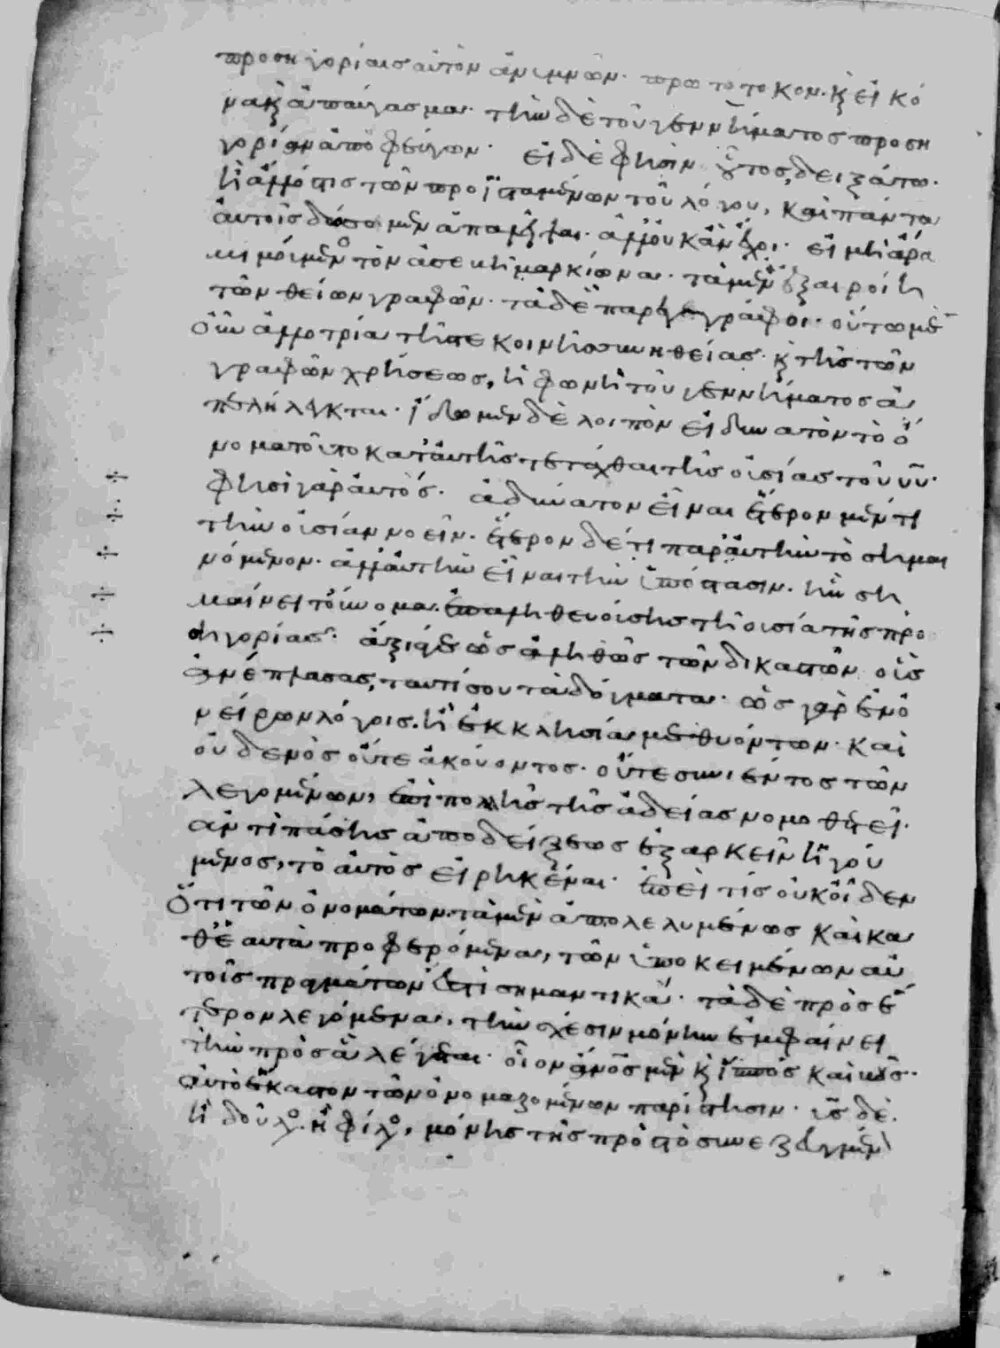 προσηγορίαις αὐτὸν ἀνυμνῶν· πρωτότοκον· κ εἰκό
να κ ἀπαύγασμα· τὴν δὲ τοῦ γεννήματος προση
γορίαν ἀποφεύγων· εἰ δέ φησιν οὗτος, δειξάτω·
ἢ ἄλλό τις τῶν προϊσταμένων τοῦ λόγου, καὶ πάντα
αὐτοῖς δώσομεν ἀπαλλ ἀλλ' οὐκ ἂν ἔχοι· εἰ μὴ ἄρα
μιμοίμενος τὸν ἀσεβῆ μαρκίωνα· τὰ μὲν ἐξαιροίη
τῶν θείων γραφῶν· τὰ δὲ παρεγγράφοι· οὕτω μὲν
οὖν ἀλλοτρία τῆς τε κοινῆς συνηθείας· κ τῆς τῶν
γραφῶν χρήσεως, ἡ φωνὴ τοῦ γεννήματος ἀ
πελήλεγκται· ἴδωμεν δὲ λοιπὸν εἰ δυνατὸν τὸ ὄ
νομα τοῦτο κατ' αὐτῆς τετάχθαι τῆς οὐσίας τοῦ υυ·
φησὶ γὰρ αὐτός· ἀδύνατον εἶναι ἕτερον μέν τι
τὴν οὐσίαν νοεῖν· ἕτερον δέ τι παρ' αὐτὴν τὸ σημαι
νόμενον· ἀλλ' αὐτὴν εἶναι τὴν ὑπόστασιν· ἣν ση
μαίνει τοὔνομα. ἐπαληθευούσης τῇ οὐσίᾳ τῆς προ
σηγορίας· ἄξιά γε ὡς ἀληθῶς τῶν δικαστῶν οὓς
ἀνέπλασας, ταυτί σου τὰ δόγματα· ὡς γὰρ ἐν ὀ
νείρων λόγοις. ἢ ἐκκλησίᾳ μεθυόντων· καὶ
οὐδενὸς οὔτε ἀκούοντος· οὔτε συνιέντος τῶν
λεγομένων, ἐπὶ πολλῆς τῆς ἀδείας νομοθετεῖ·
ἀντὶ πάσης ἀποδείξεως ἐξαρκεῖν ἡγού
μενος, τὸ αὐτὸς εἰρηκέναι· ἐπεὶ τίς οὐκ οἶδεν
ὅτι τῶν ὀνομάτων τὰ μὲν ἀπολελυμένως καὶ κα
θ' ἑαυτὰ προφερόμενα, τῶν ὑποκειμένων αὐ
τοῖς πραγμάτων ἐστὶ σημαντικά· τὰ δὲ πρὸς ἕ
τερον λεγόμενα, τὴν σχέσιν μόνην ἐμφαίνει
τὴν πρὸς ἃ λέγεται· οἷον ἄνος μὲν κ ἵππος καὶ βοῦς·
αὐτὸ ἕκαστον τῶν ὀνομαζομένων παρίστησιν· υς δὲ.
ἢ δοῦλος. ἢ φίλος, μόνης τῆς πρὸς τὸ συνεζευγμέν